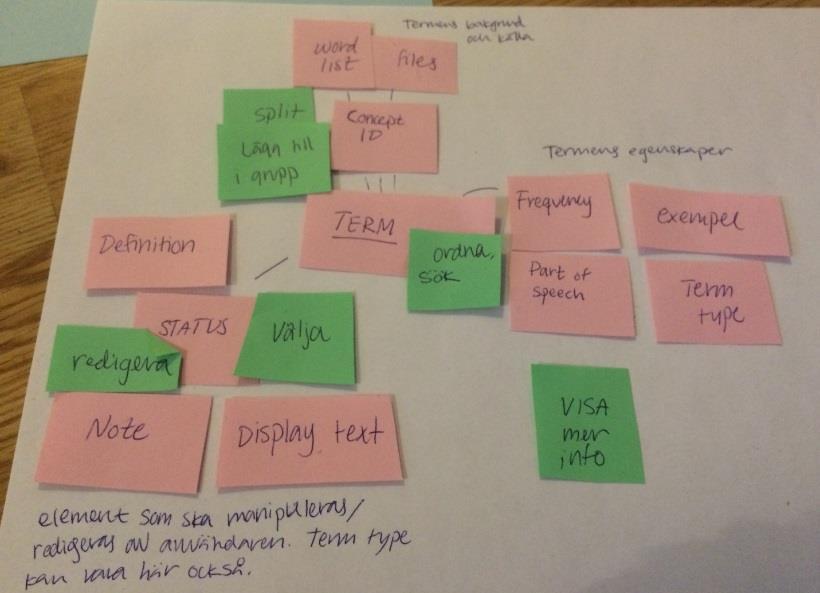 Termens bakgrund
och källa
word
list
files
split
Concept
ID
Lägg till
i grupp
Termens egenskaper
TERM
Frequency
exempel
Definition
ordna,
sök
Part of
speech
Term
type
STATUS
Välja
redigera
VISA
mer
info
Note
Display text
element som ska manipuleras/
redigeras av användaren. Term type
kan vara här också.